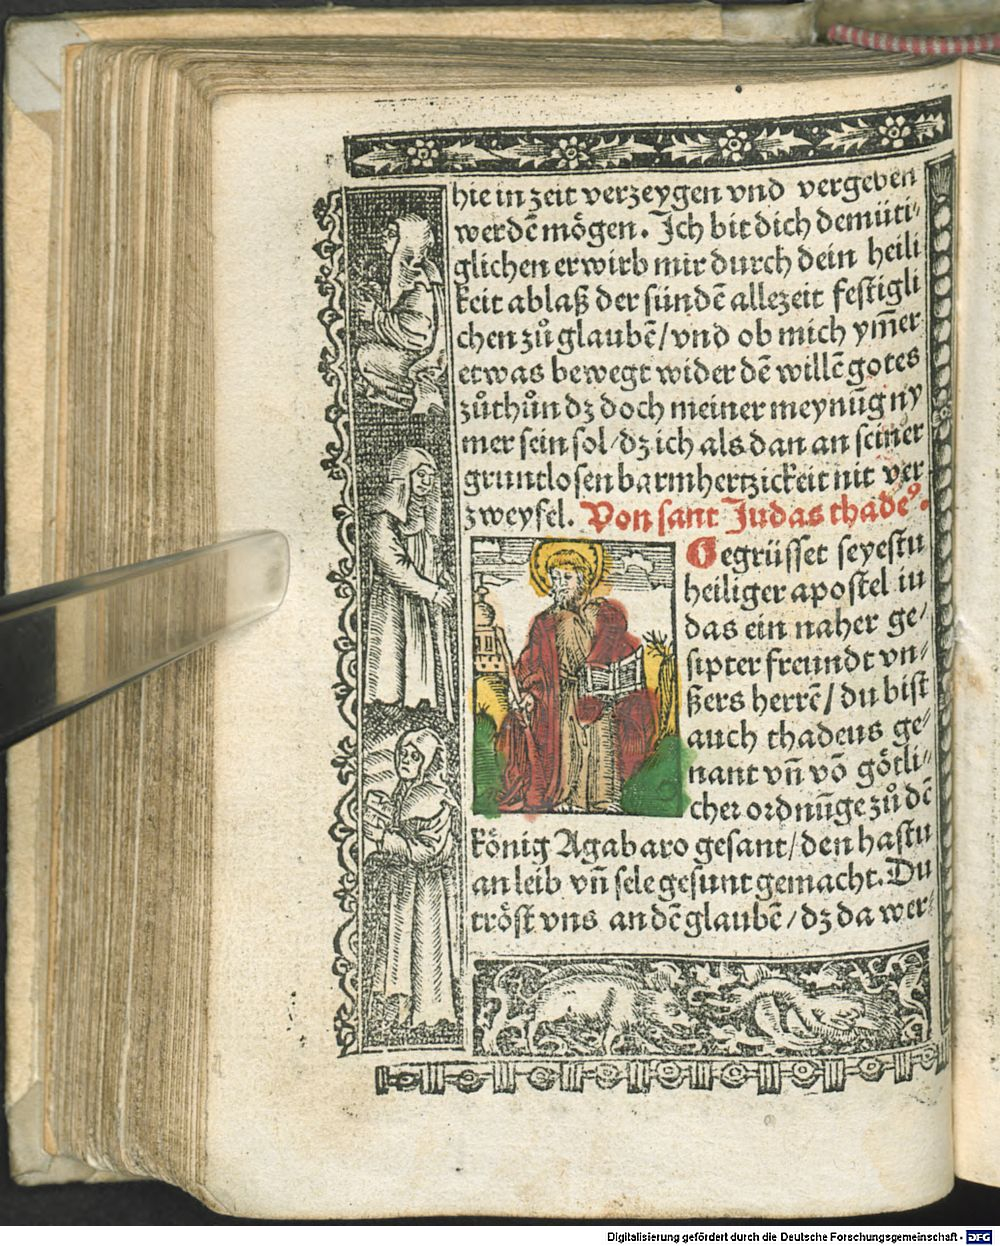 hie in zeit verzeygen vnd vergeben
werdē mögen. Ich bit dich demüti⸗
glichen erwirb mir durch dein heili
keit ablaß der sündē allezeit festigli
chen zů glaubē/ vnd ob mich ym̄er
etwas bewegt wider dē willē gotes
zůthůn dz doch meiner meynūg ny
mer sein sol/ dz ich als dan an seiner
gruntlosen barmhertzickeit nit ver⸗
zweyfel. Von sant Judas thadeꝰ.
Gegrüsset seyestu
heiliger apostel iu
das ein naher ge⸗
sipter freundt vn⸗
ßers herrē/ du bist
auch thadeus ge⸗
nant vn̄ vō götli⸗
cher ordnūge zů dē
könig Agabaro gesant/ den hastu
an leib vn̄ sele gesunt gemacht. Du
tröst vns an dē glaubē/ dz da wer⸗
Digitalisierung gefördert durch die Deutsche Forschungsgemeinschaft - DFG